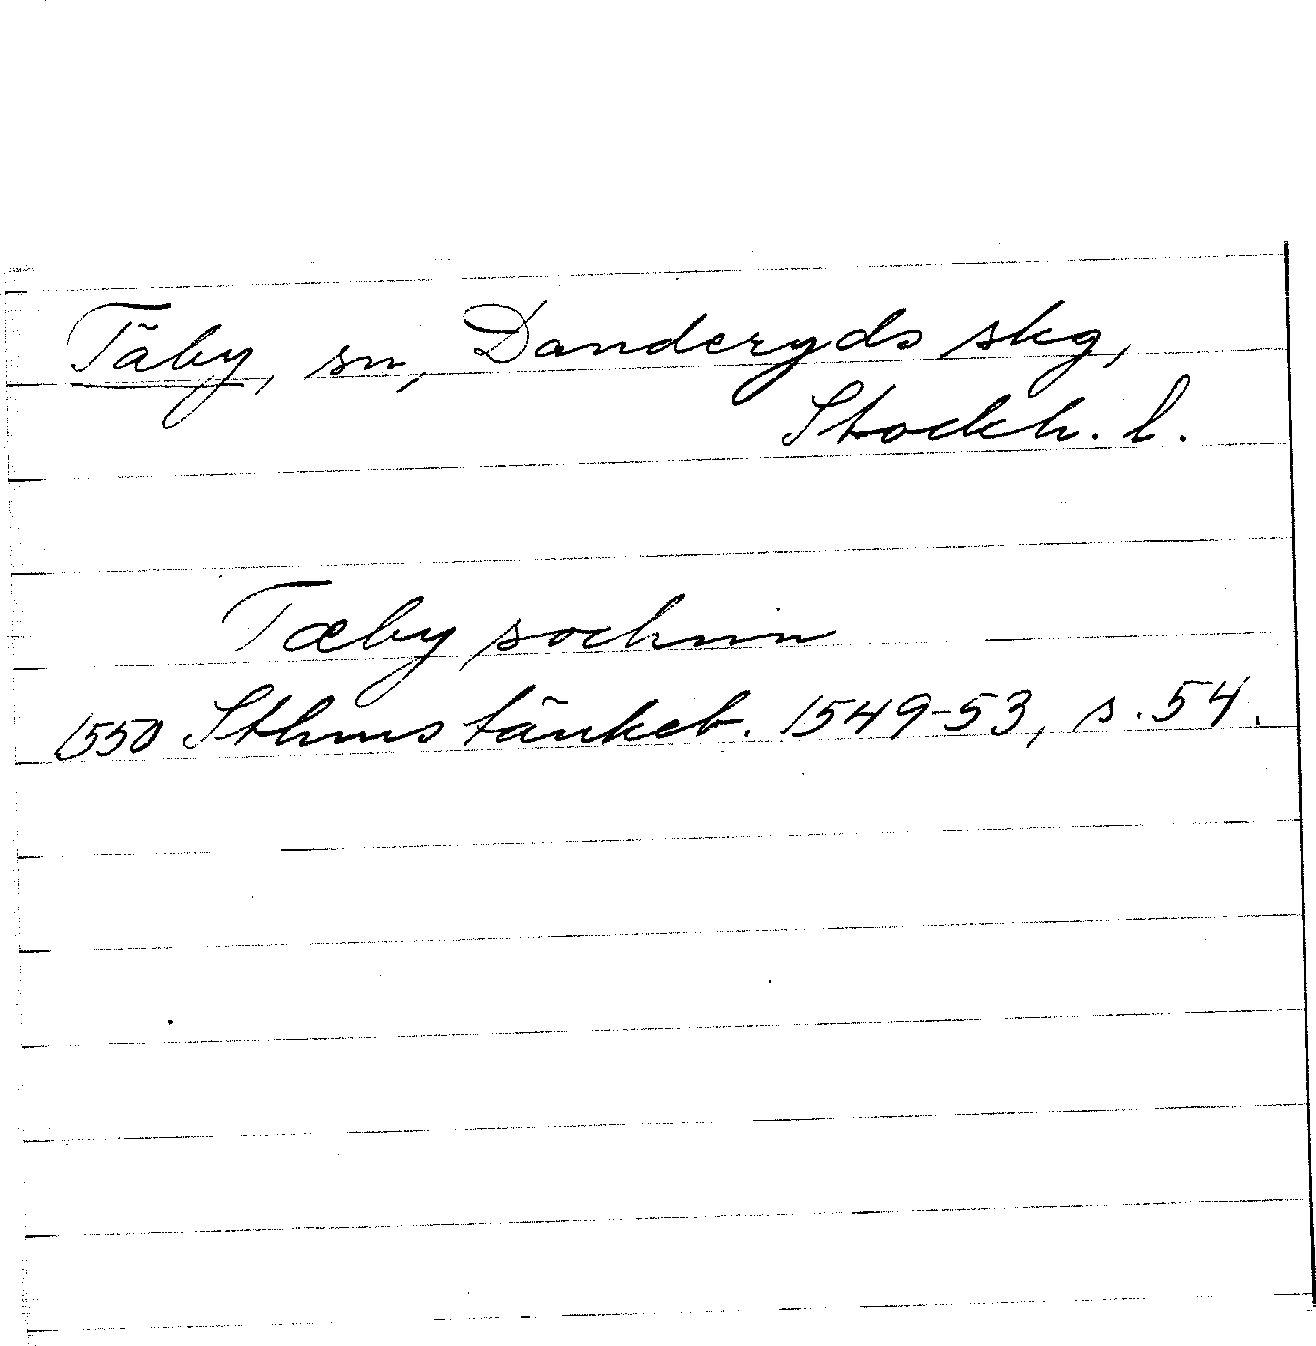 Täby, sn, Danderyds skg,
Stockh. l.
Tæby sochnn
1550 Sthms tänkeb. 1549-53, s. 54.